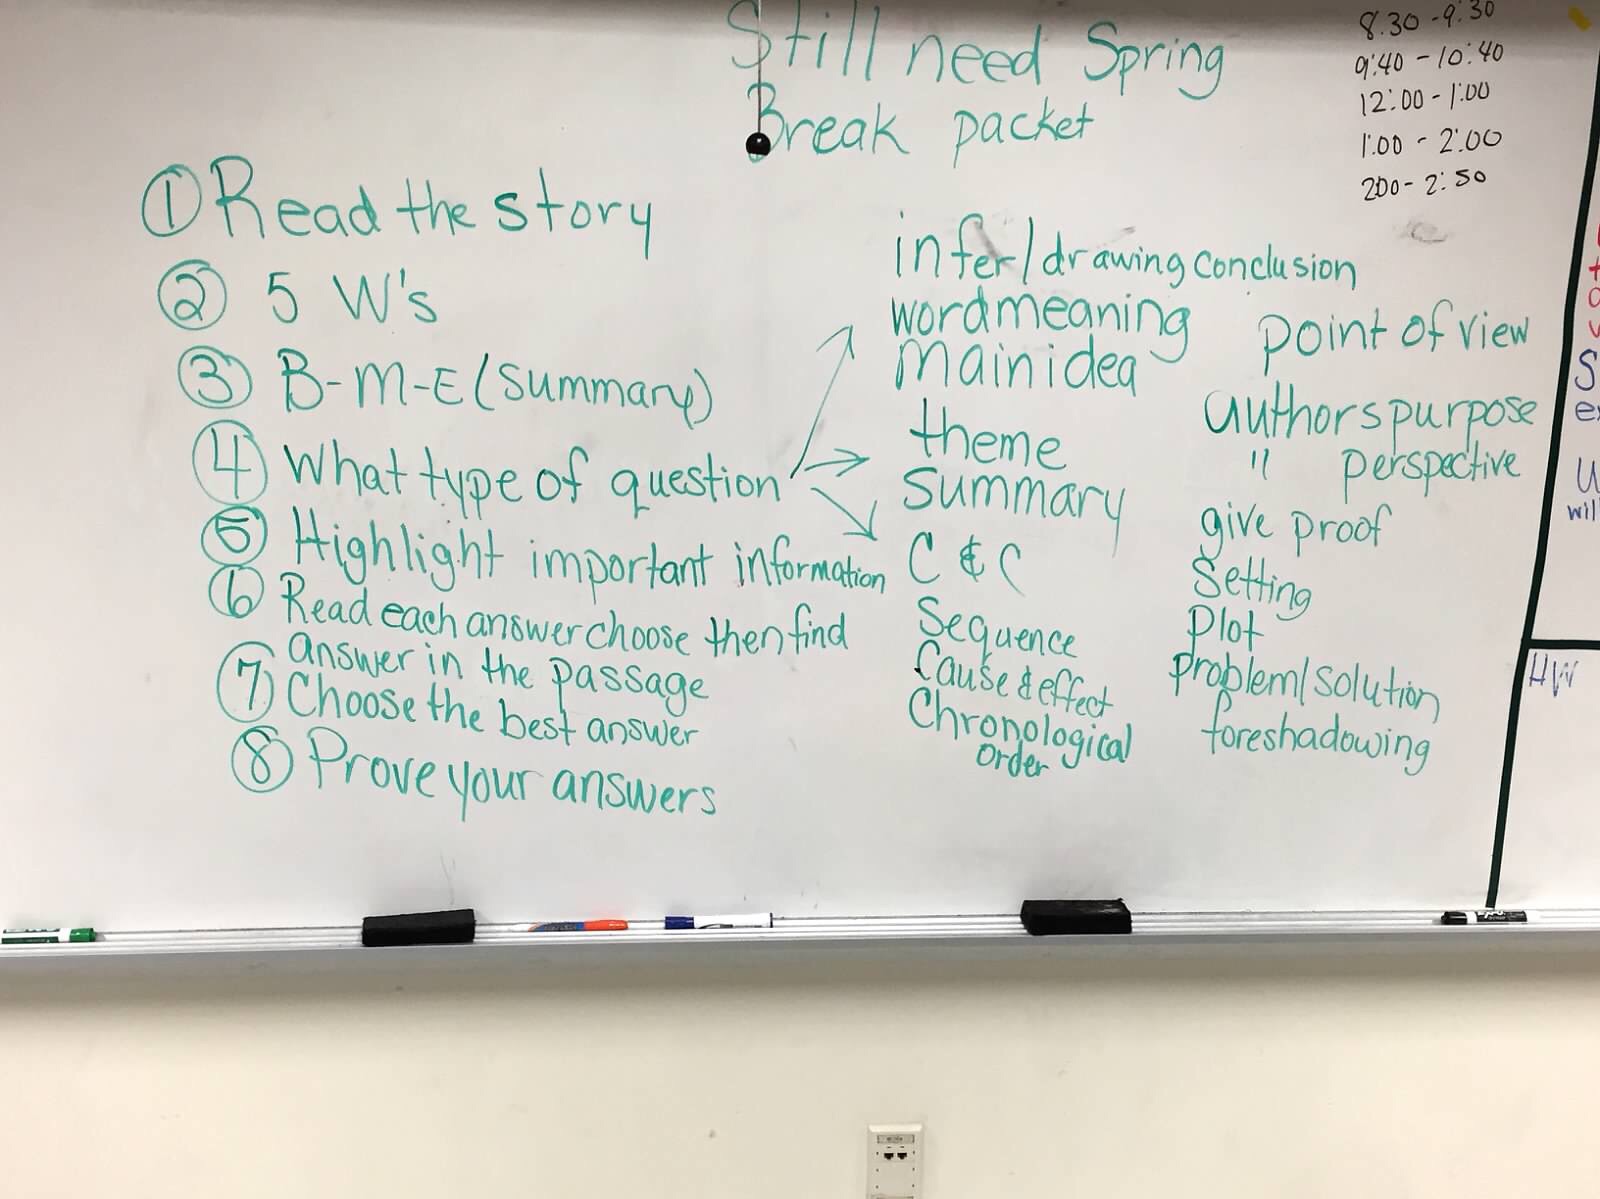 Still need Spring
Break packet
8:30 - 9:30
9:40 - 10:40
12:00 - 1:00
1:00 - 2:00
200 - 2:50
① Read the story
② 5 W's
③ B-M-E (summary)
④ What type of question
⑤ Highlight important information
⑥ Read each answer choose then find
answer in the passage
⑦ Choose the best answer
⑧ Prove your answers
infer/drawing conclusion
word meaning
main idea
theme
Summary
C & C
Sequence
Cause & effect
Chronological
order
point of view
authors purpose
" perspective
give proof
Setting
Plot
problem/solution
foreshadowing
will
HW